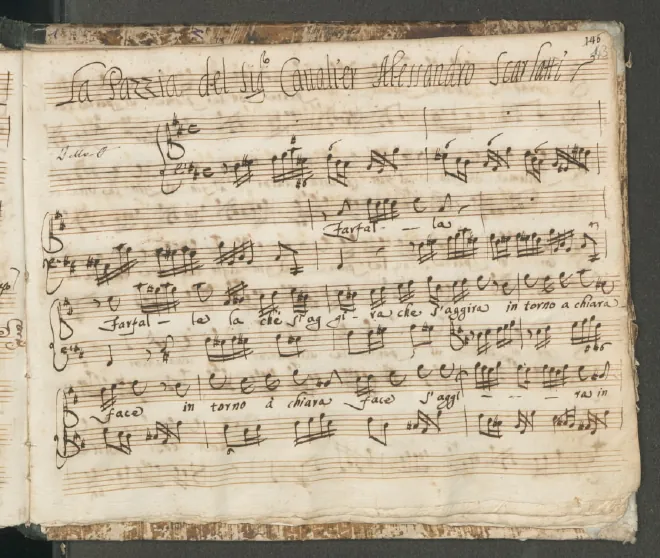 146
La Pazzia del Sigr. Cavalier Alessandro Scarlatti
Farfal - - la
Farfal - la la che s'ag gi - ra che s'aggira in torno a chiara
face in torno à chiara face s'aggi - - - ra in